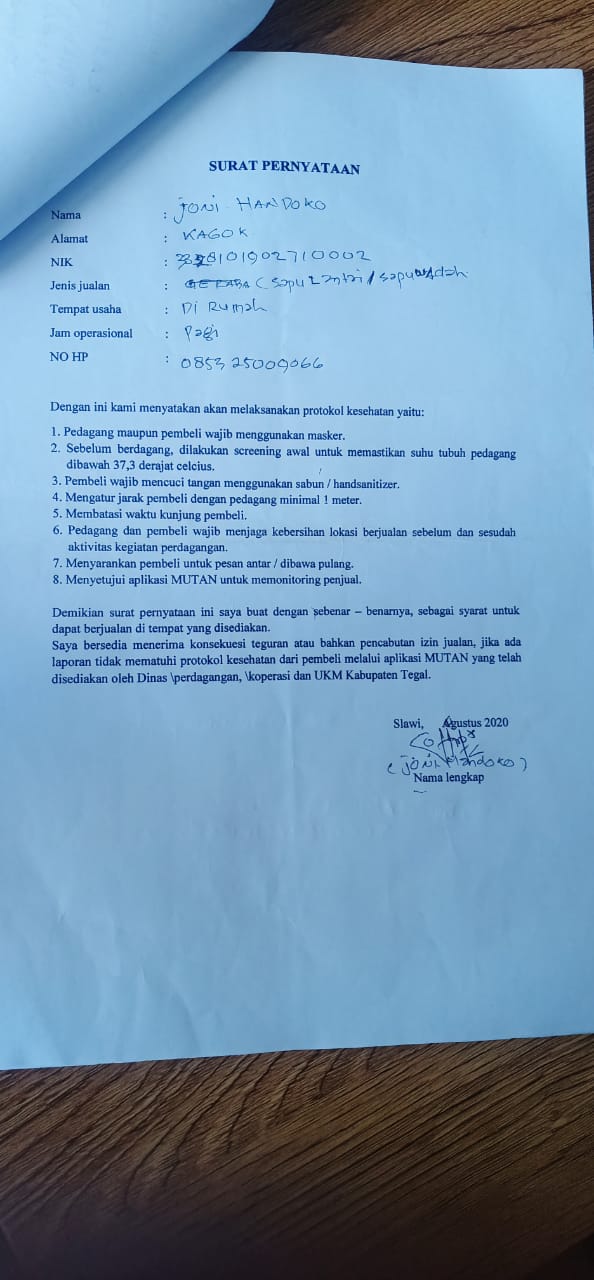 SURAT PERNYATAAN
Nama : JONI HANDOKO
Alamat : KAGOK
NIK : 8101902710002
Jenis jualan : ( sapu Lantai / sapu
Tempat usaha : Di Rumah
Jam operasional : Pagi
NO HP : 085325009066
Dengan ini kami menyatakan akan melaksanakan protokol kesehatan yaitu:
1. Pedagang maupun pembeli wajib menggunakan masker.
2. Sebelum berdagang, dilakukan screening awal untuk memastikan suhu tubuh pedagang
dibawah 37,3 derajat celcius.
3. Pembeli wajib mencuci tangan menggunakan sabun / handsanitizer.
4. Mengatur jarak pembeli dengan pedagang minimal ! meter.
5. Membatasi waktu kunjung pembeli.
6. Pedagang dan pembeli wajib menjaga kebersihan lokasi berjualan sebelum dan sesudah
aktivitas kegiatan perdagangan.
7. Menyarankan pembeli untuk pesan antar / dibawa pulang.
8. Menyetujui aplikasi MUTAN untuk memonitoring penjual.
Demikian surat pernyataan ini saya buat dengan sebenar – benarnya, sebagai syarat untuk
dapat berjualan di tempat yang disediakan.
Saya bersedia menerima konsekuesi teguran atau bahkan pencabutan izin jualan, jika ada
laporan tidak mematuhi protokol kesehatan dari pembeli melalui aplikasi MUTAN yang telah
disediakan oleh Dinas \perdagangan, \koperasi dan UKM Kabupaten Tegal.
Slawi, Agustus 2020
( JONI Handoko )
Nama lengkap